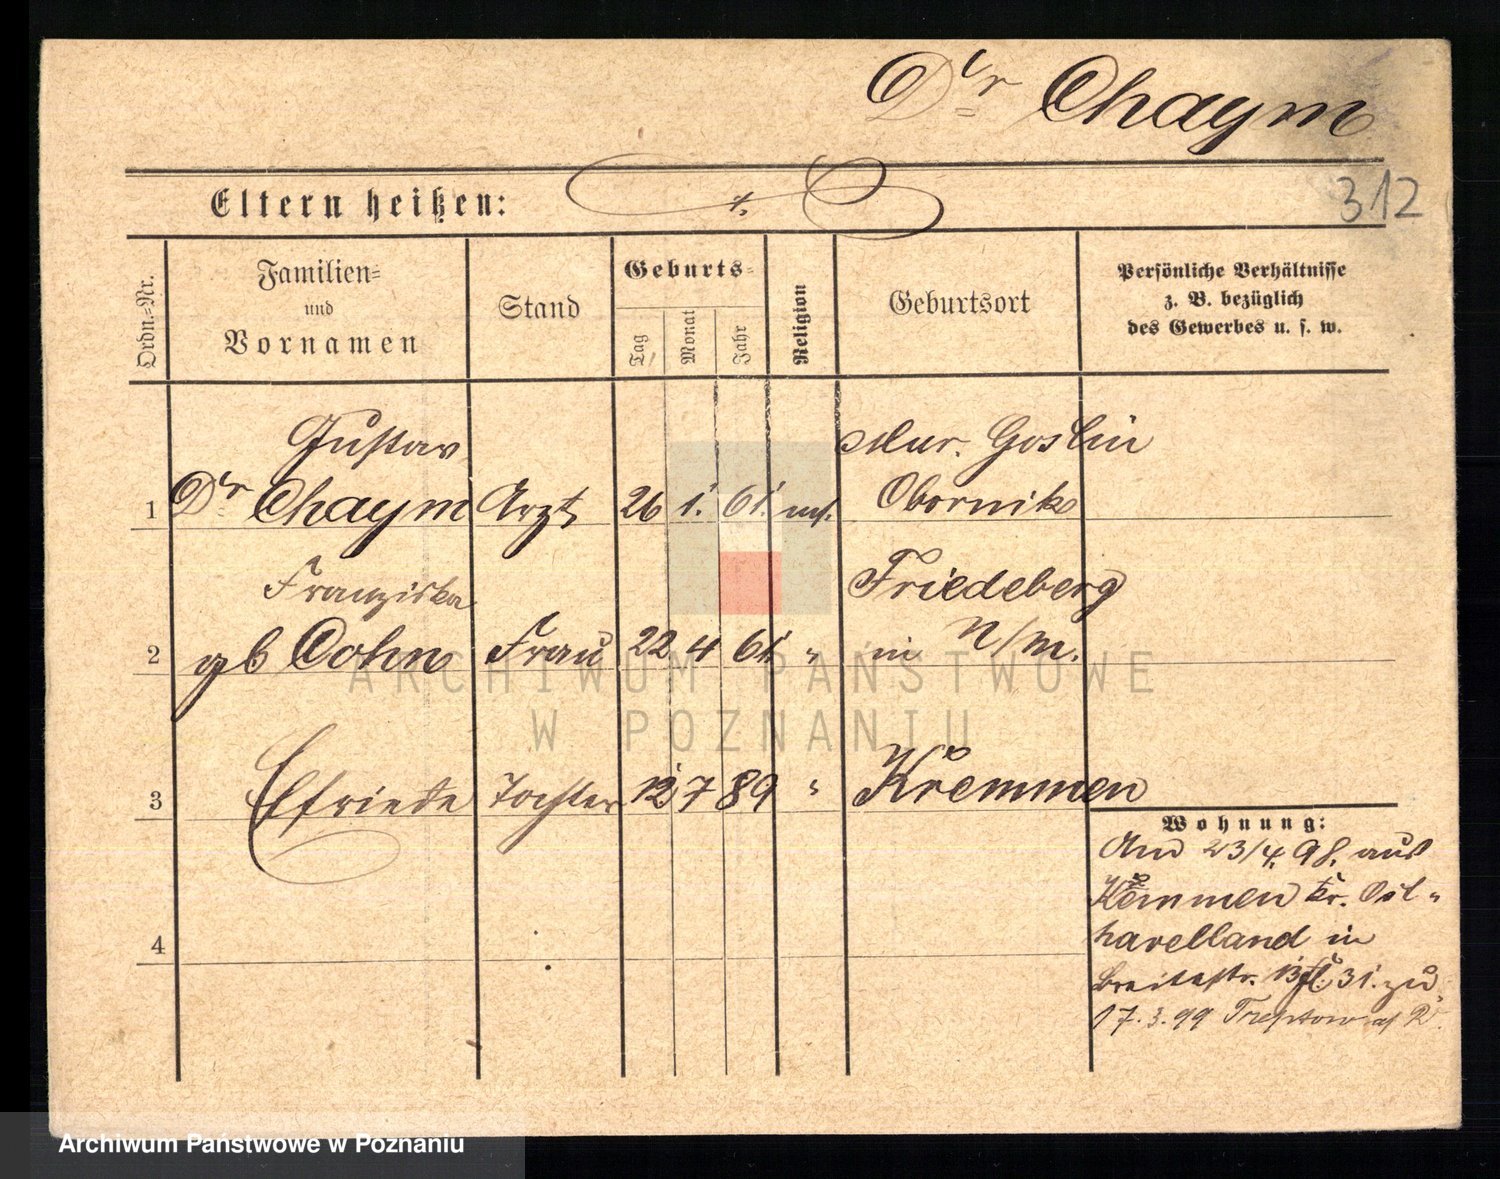 Dr Chaym
312
Eltern heißen: ./.
Ordn.-Nr.
Familien-
und
Vornamen
Stand
Geburts-
Tag
Monat
Jahr
Religion
Geburtsort
Persönliche Verhältnisse
z. B. bezüglich
des Gewerbes u. s. w.
Gustav
1 Dr Chaym Arzt 26 1. 61. mos.
Mur. Goslin
Obornik
Franziska
2 gb Cohn Frau 22 4 61 "
Friedeberg
in N/M.
3 Elfriede Tochter 12 7 89 " Kremmen
4
Wohnung:
Am 23/4. 98. aus
Kremmen Kr. Ost-
havelland in
Breitestr. 13 31. zu
17.3.99 Treptow a/ R.
ARCHIWUM PAŃSTWOWE
W POZNANIU
Archiwum Państwowe w Poznaniu